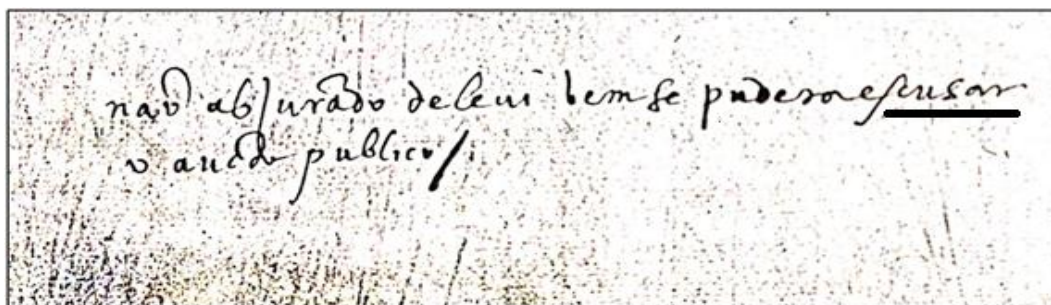 naõ abjurãdo de levi bem se pudera escusar
o aucto publico /